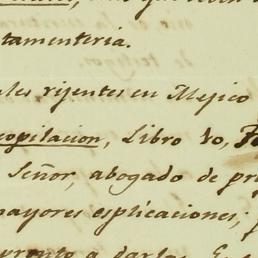 tamenteria.
les rijentes en Mejico
copilacion, Libro 10,
Señor, abogado de pr
mayores esplicaciones;
pronto a darlas. E